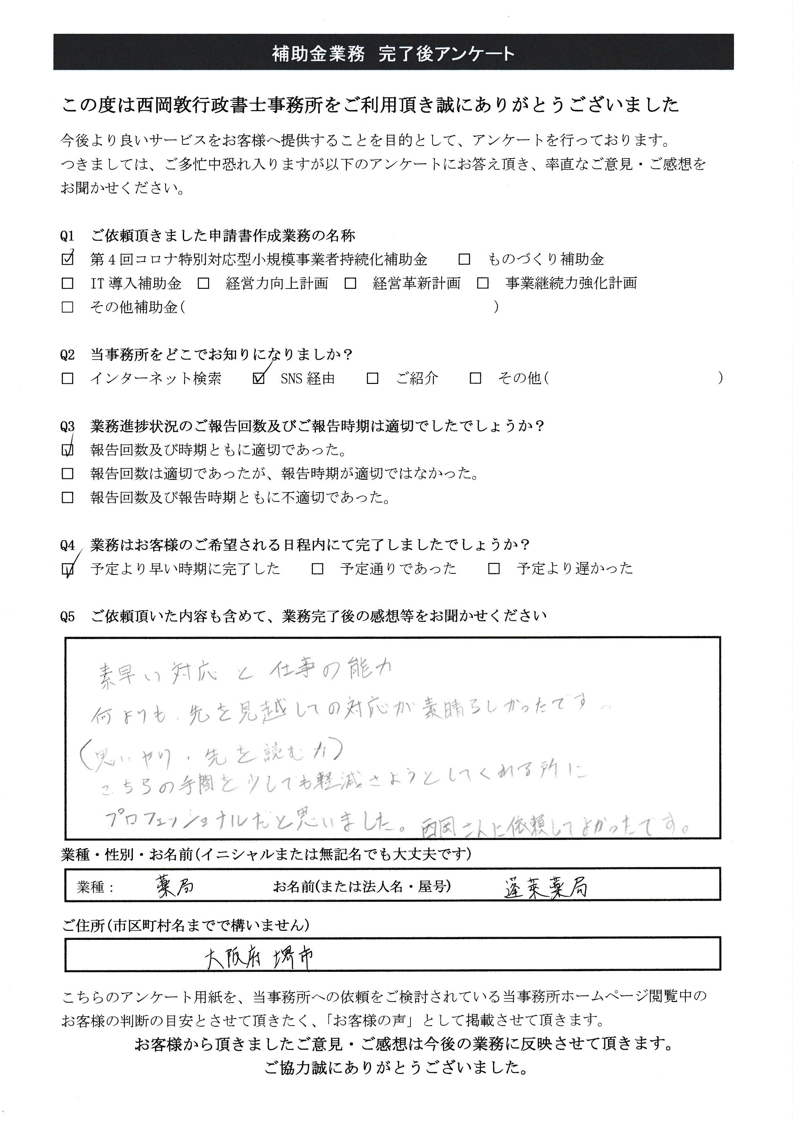 補助金業務 完了後アンケート
この度は西岡敦行政書士事務所をご利用頂き誠にありがとうございました
今後より良いサービスをお客様へ提供することを目的として、アンケートを行っております。
つきましては、ご多忙中恐れ入りますが以下のアンケートにお答え頂き、率直なご意見・ご感想を
お聞かせください。
Q1 ご依頼頂きました申請書作成業務の名称
☑ 第4回コロナ特別対応型小規模事業者持続化補助金 □ ものづくり補助金
□ IT導入補助金 □ 経営力向上計画 □ 経営革新計画 □ 事業継続力強化計画
□ その他補助金( )
Q2 当事務所をどこでお知りになりましか？
□ インターネット検索 ☑ SNS経由 □ ご紹介 □ その他( )
Q3 業務進捗状況のご報告回数及びご報告時期は適切でしたでしょうか？
☑ 報告回数及び時期ともに適切であった。
□ 報告回数は適切であったが、報告時期が適切ではなかった。
□ 報告回数及び報告時期ともに不適切であった。
Q4 業務はお客様のご希望される日程内にて完了しましたでしょうか？
☑ 予定より早い時期に完了した □ 予定通りであった □ 予定より遅かった
Q5 ご依頼頂いた内容も含めて、業務完了後の感想等をお聞かせください
素早い対応と仕事の能力
何よりも、先を見越しての対応が素晴らしかったです。
(思いやり・先を読む力)
こちらの手間を少しでも軽減さようとしてくれる所に
プロフェッショナルだと思いました。西岡さんに依頼してよかったです。
業種・性別・お名前(イニシャルまたは無記名でも大丈夫です)
業種： 薬局 お名前(または法人名・屋号) 蓬莱薬局
ご住所(市区町村名までで構いません)
大阪府堺市
こちらのアンケート用紙を、当事務所への依頼をご検討されている当事務所ホームページ閲覧中の
お客様の判断の目安とさせて頂きたく、「お客様の声」として掲載させて頂きます。
お客様から頂きましたご意見・ご感想は今後の業務に反映させて頂きます。
ご協力誠にありがとうございました。